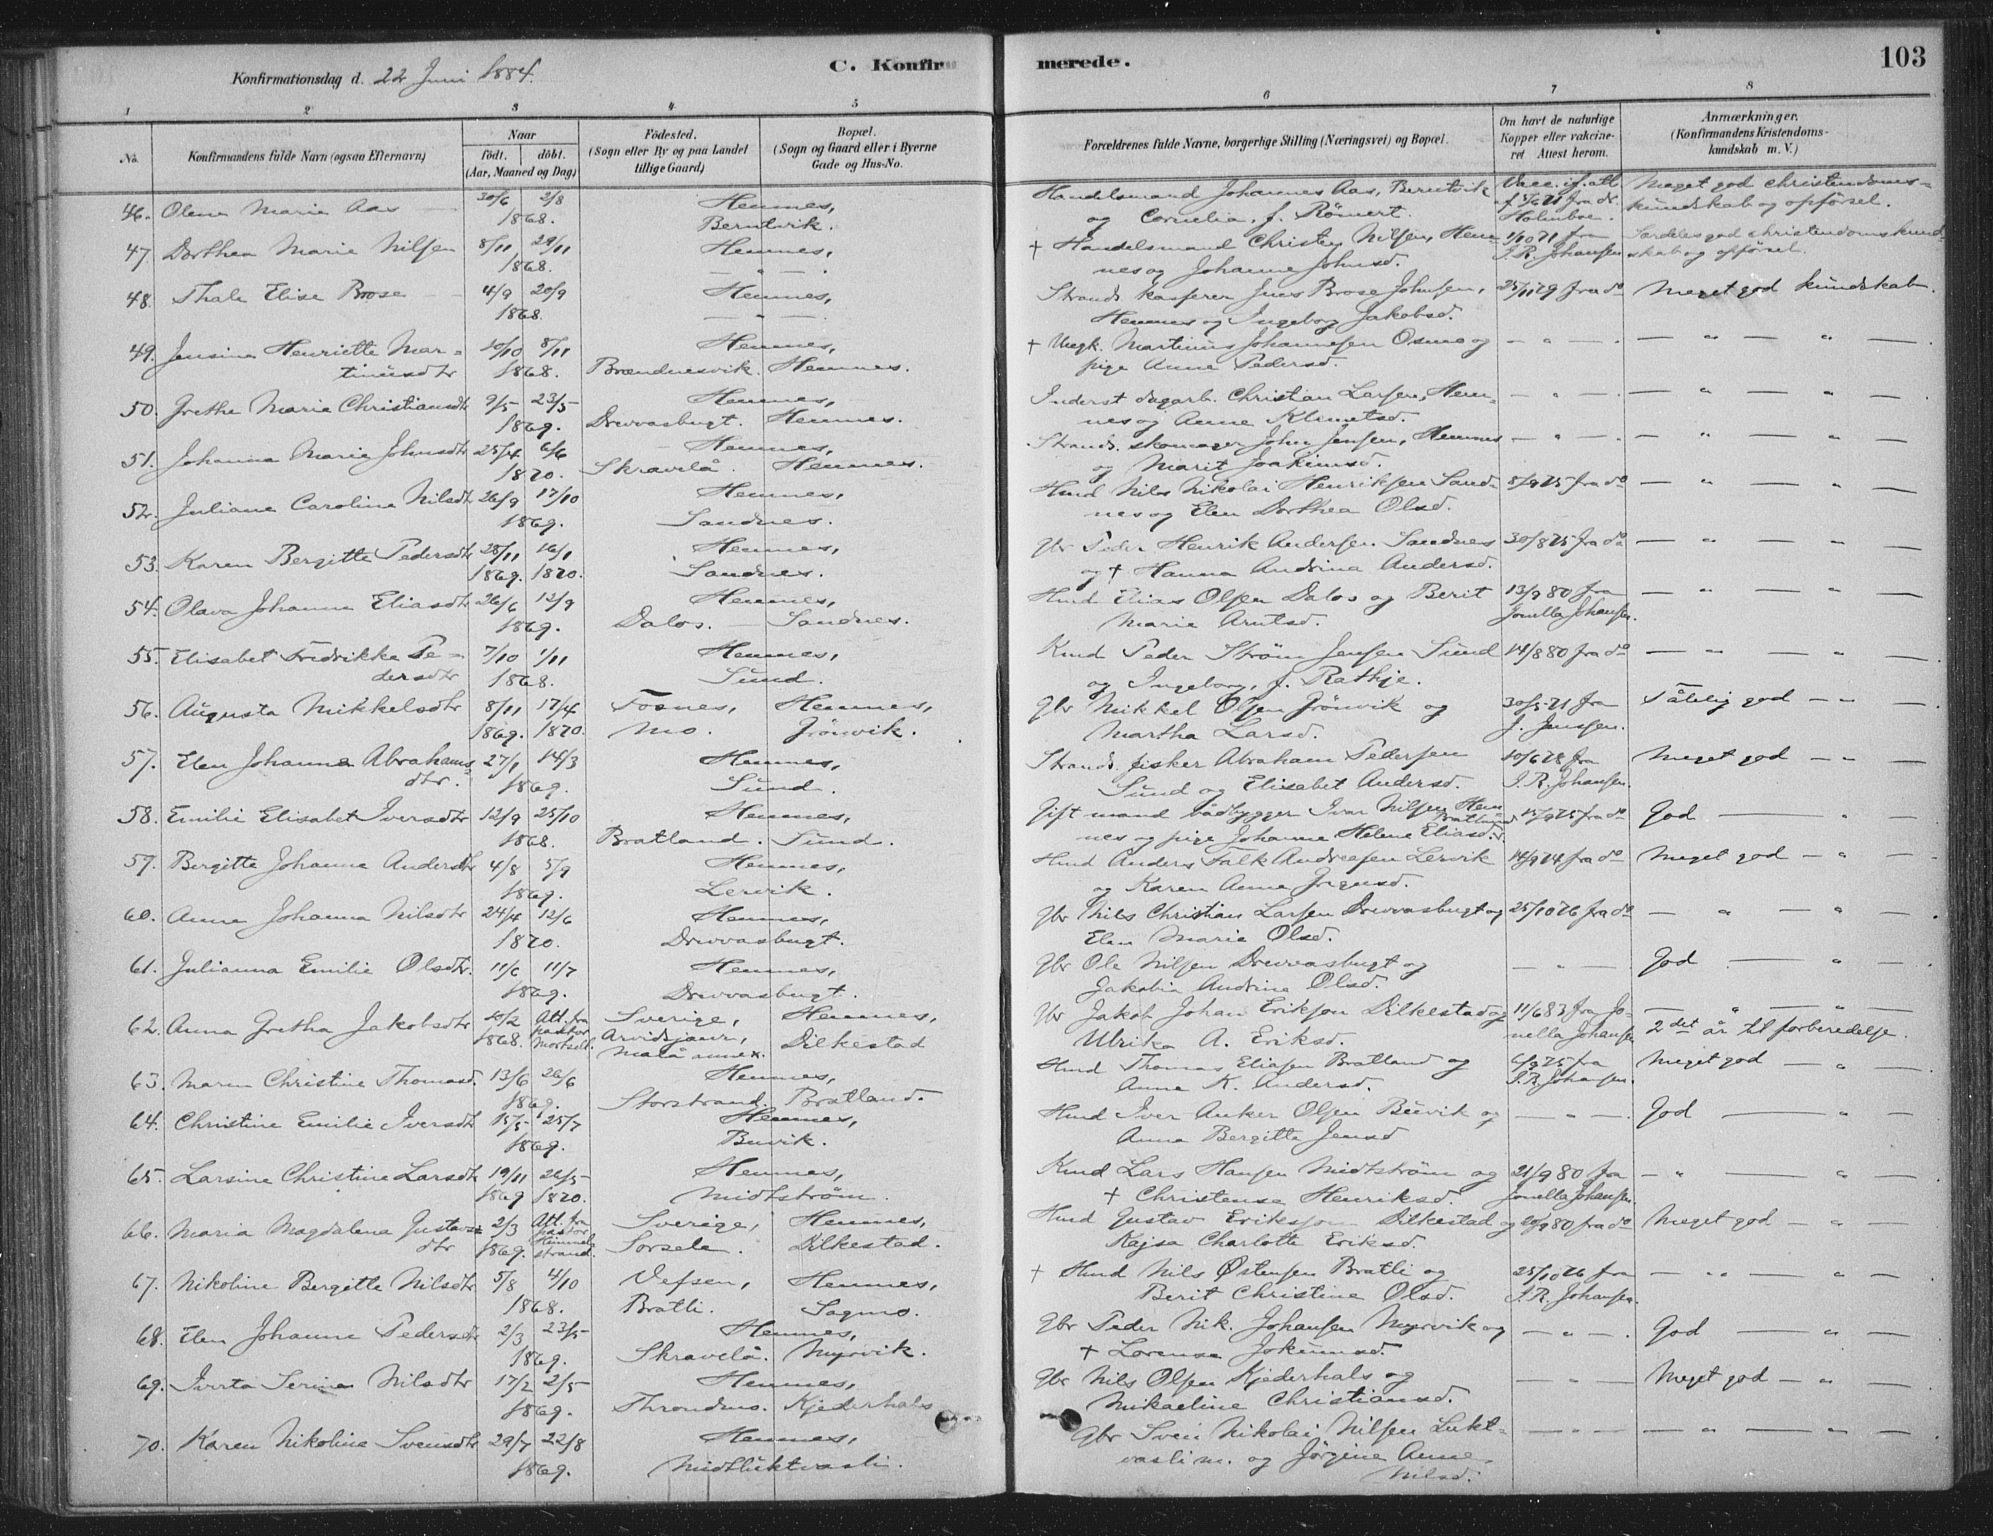 Konfirmationsdag d. 22 Juni 1884.
C. Konfirmerede.
103
1 2 3 4 5 6 7 8
No.
Konfirmandens fulde Navn (ogsaa Efternavn)
Naar
født. døbt.
(Aar, Maaned og Dag)
Fødested.
(Sogn eller By og paa Landet
tillige Gaard)
Bopæl.
(Sogn og Gaard eller i Byerne
Gade og Hus-No.
Forældrenes fulde Navne, borgerlige Stilling (Næringsvei) og Bopæl.
Om havt de naturlige
Kopper eller vakcine-
ret Attest herom.
Anmærkninger.
(Konfirmandens Kristendoms-
kundskab m. V.)
46. Olena Marie Aas 30/6 2/8 Hemnes, Handelsmand Johannes Aas, Berntvik Vacc. if. att. Meget god christendoms=
1868. Berntvik. og Cornelia, f. Römert. Holmboe. kundskab og opførsel.
47 Dorthea Marie Nilsen 8/11 29/11 Hemnes, + Handelsmand Christen Nilsen, Hem- 1/10 71 fra Særdeles god christendomskund-
1868. — " — . nes og Johanne Johnsd. I. R. Johansen skab og opførsel.
48. Thale Elise Brose 4/9 20/9 Hemnes, Strands. kasserer Jens Brose Johnsen, 25/11 79 fra do Meget god kundskab.
1868. — " — . Hemnes og Ingeborg Jakobsd.
49. Jensine Henriette Mar= 10/10 8/11 Hemnes, + Ungk. Martinus Johannesen Osmo og — " — . — " — " —
tinusdtr 1868. Brændnesvik. Hemnes. pige Anne Pedersd.
50. Grethe Marie Christiansdtr 9/5 23/5 Hemnes, Inderst dagarb. Christian Larsen, Hem- — " — . — " — " —
1869. Drevvasbugt. Hemnes. nes og Anne Klemetsd.
51. Johanna Marie Johnsdtr 25/4 6/6 Hemnes, Strands. skomager John Jensen, Hemnes — " — . — " — " —
1870. Skravelå. Hemnes. og Marit Joakimsd.
52. Juliane Caroline Nilsdtr 26/9 17/10 Hemnes, Husmd Nils Nikolai Henriksen Sand- 5/9 75 fra do — " — " —
1869. Sandnes. nes og Elen Dorthea Olsd.
53. Karen Bergitte Pedersdtr 28/11 16/1 Hemnes, Gbr Peder Henrik Andersen Sandnes 30/8 75 fra do — " — " —
1869. 1870. Sandnes. og + Hanna Andrina Andersd.
54. Olava Johanna Eliasdtr 26/6 12/9 Hemnes, Husmd Elias Olsen Dalos og Berit 13/9 80 fra — " — " —
1869. Dalos. Sandnes. Marie Arntsd. Jonella Johansen.
55. Elisabet Fredrikke Pe- 7/10 1/11 Hemnes, Husmd Peder Strøm Jensen Sund 14/8 80 fra do — " — " —
dersdtr 1868. Sund. og Ingeborg, f. Rathje.
56. Augusta Mikkelsdtr 8/11 17/4 Fosnes, Hemnes, Gbr Mikkel Olsen Grönvik og 30/5 71 fra Tålelig god — " —
1869. 1870. Mo. Grönvik. Martha Larsd. J. Jenssen.
57. Elen Johanna Abrahams= 27/1 14/3 Hemnes, Strands. fisker Abraham Pedersen 10/6 78 fra Meget god — " —
dtr. 1869. Sund. Sund og Elisabet Andersd. I. R. Johansen.
58. Emilie Elisabet Iversdtr 12/9 25/10 Hemnes, Gift mand bådbygger Ivar Nilsen Hem 15/9 75 fra do God — " —
1868. Bratland. Sund. nes og pige Johanne Helene Eliasd.
59. Bergitte Johanne Andersdtr 4/8 5/9 Hemnes, Husmd Anders Falk Andreasen Lervik 14/9 74 fra do Meget god — " —
1869. Lervik. og Karen Anna Jrgensd.
60. Anna Johanna Nilsdtr 24/4 12/6 Hemnes, Gbr Nils Christian Larsen Drevvasbugt og 25/10 76 fra do — " — " —
1870. Drevvasbugt. Elen Marie Olsd.
61. Julianna Emilie Olsdtr. 11/6 11/7 Hemnes, Gbr Ole Nilsen Drevvasbugt og — " — God — " —
1869. Drevvasbugt. Jakobia Andrine Olsd.
62. Anna Gretha Jakobsdtr 10/2 Att. fra Sverige, Hemnes, Gbr Jakob Johan Eriksson Dilkestad og 11/6 83 fra Jo- — " — " —
1868. pastor Arvidsjaur, Dilkestad Ulrika A. Eriksd. nella Johansen 2det år til forberedelse.
Malå annex.
63. Maren Christine Thomasd. 13/6 26/6 Hemnes, Husmd Thomas Eliasen Bratland og 6/9 75 fra Meget god — " —
1869. Storstrand. Bratland. Anne K. Andersd. I. R. Johansen.
64. Christine Emilie Iversdtr 15/5 25/7 Hemnes, Husmd Iver Anker Olsen Buvik og — " — . God — " —
1869. Buvik. Anna Bergitte Jensd
65. Larsine Christine Larsdtr 19/11 26/5 Hemnes, Husmd Lars Hansen Midtström og 21/9 80 fra — " — " —
1869 1870. Midtström. + Christense Henriksd. Jonella Johansen.
66. Maria Magdalena Gustavs= 2/3 Att. fra Sverige, Hemnes, Husmd Gustav Eriksson Dilkestad og 20/9 80 fra do Meget god — " —
dtr 1869. pastor Sorsele. Dilkestad. Kajsa Charlotte Eriksd.
67. Nikoline Bergitte Nilsdtr 5/8 4/10 Vefsen, Hemnes, + Husmd Nils Østensen Bratli og 25/10 76 fra — " — " —
1868. Bratli. Sagmo. Berit Christine Olsd. I. R. Johansen.
68. Elen Johanne Pedersdtr 2/3 23/5 Hemnes, Gbr Peder Nik. Johansen Myrvik og — " — . God — " —
1869. Skravelå. Myrvik. + Lorense Jokumsd.
69. Iverta Serine Nilsdtr 17/2 2/5 Hemnes, Gbr Nils Olsen Kjederhals og — " — Meget god — " —
1869. Throndnes. Kjederhals Mikaeline Christiansd.
70. Karen Nikoline Svensdtr 29/7 22/8 Hemnes, Gbr Sven Nikolai Nilsen Lukt- — " — . — " — " —
1869. Midtluktvasli. vasli m. og Jørgine Anne
Nilsd.